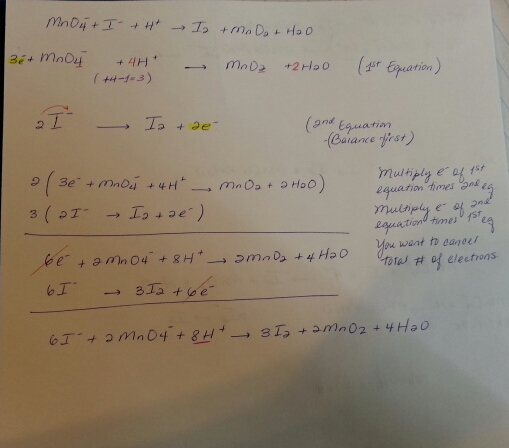 MnO4⁻ + I⁻ + H⁺ → I2 + MnO2 + H2O
3e⁻ + MnO4⁻ + 4H⁺ → MnO2 + 2H2O (1st Equation)
(+4-1=3)
2I⁻ → I2 + 2e⁻ (2nd Equation
-(Balance first)
2(3e⁻ + MnO4⁻ + 4H⁺ → MnO2 + 2H2O)
3(2I⁻ → I2 + 2e⁻)
Multiply e⁻ of 1st
equation times 2nd eq
Multiply e⁻ of 2nd
equation times 1st eq
You want to cancel
total # of electrons.
6e⁻ + 2MnO4⁻ + 8H⁺ → 2MnO2 + 4H2O
6I⁻ → 3I2 + 6e⁻
6I⁻ + 2MnO4⁻ + 8H⁺ → 3I2 + 2MnO2 + 4H2O